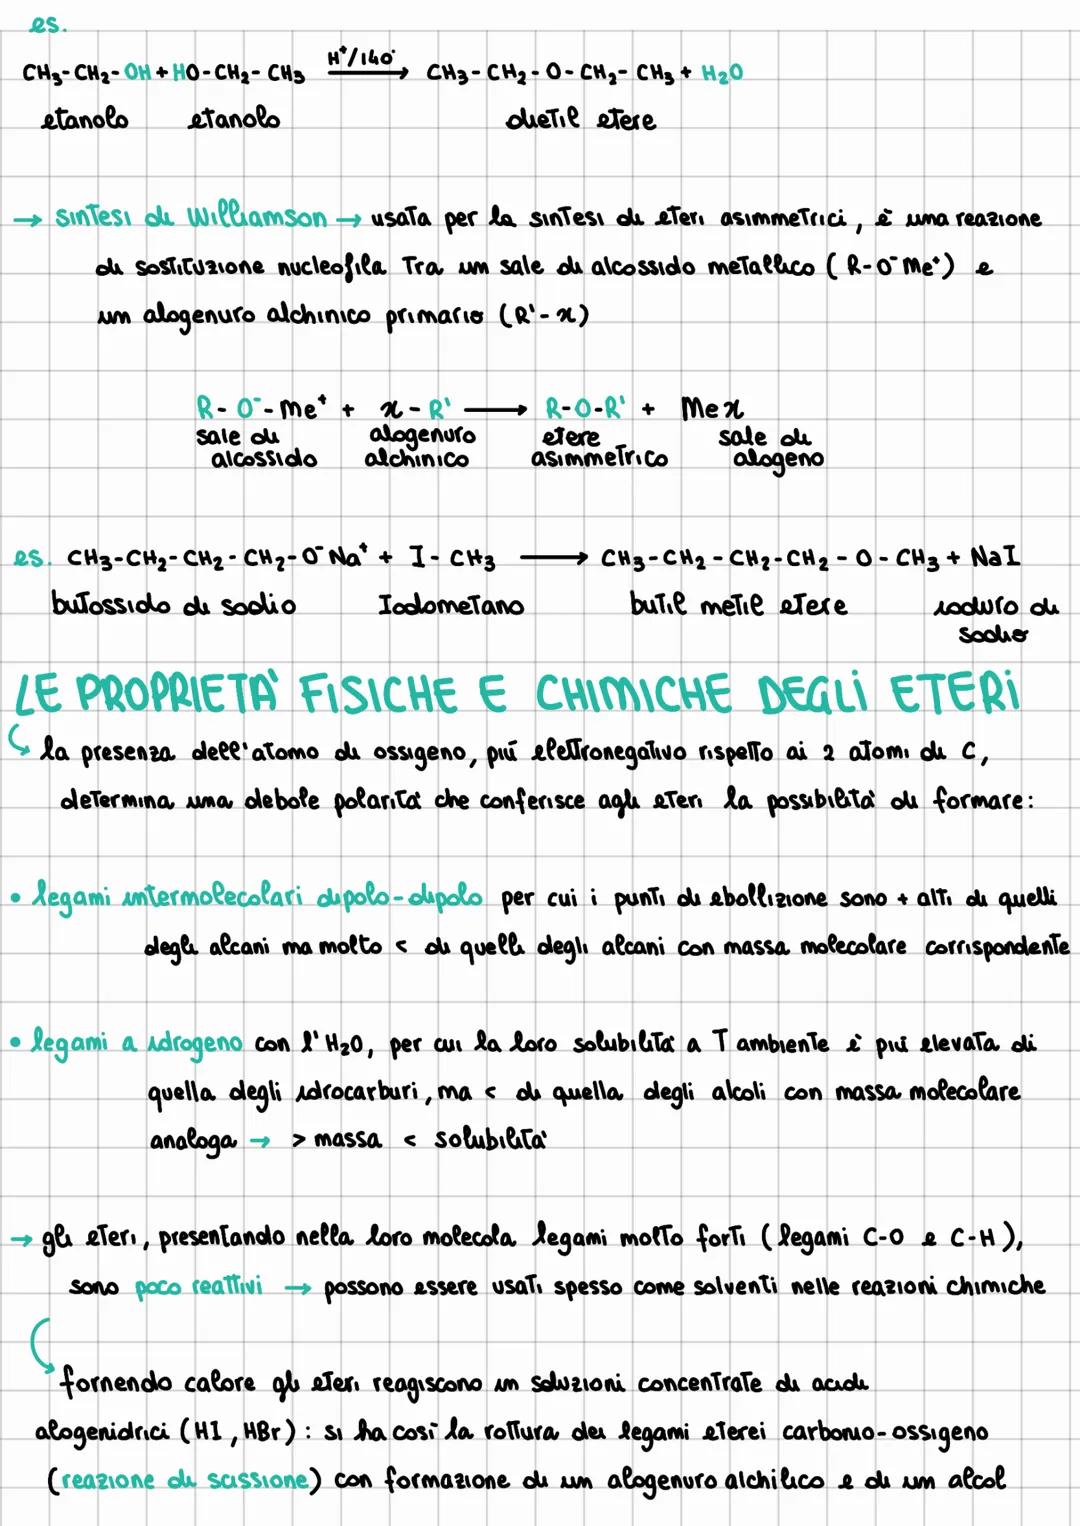 es.
CH₃-CH₂-OH + HO-CH₂-CH₃ H⁺/140° ⟶ CH₃-CH₂-O-CH₂-CH₃ + H₂O
etanolo etanolo dietil etere
→ sintesi di Williamson → usata per la sintesi di eteri asimmetrici, è una reazione
di sostituzione nucleofila tra un sale di alcossido metallico (R-O⁻Me⁺) e
un alogenuro alchinico primario (R'-x)
R-O⁻-Me⁺ + x-R' ⟶ R-O-R' + Mex
sale di alogenuro etere sale di
alcossido alchinico asimmetrico alogeno
es. CH₃-CH₂-CH₂-CH₂-O⁻Na⁺ + I-CH₃ ⟶ CH₃-CH₂-CH₂-CH₂-O-CH₃ + NaI
butossido di sodio Iodometano butil metil etere ioduro di
sodio
LE PROPRIETA' FISICHE E CHIMICHE DEGLI ETERI
la presenza dell'atomo di ossigeno, più elettronegativo rispetto ai 2 atomi di C,
determina una debole polarità che conferisce agli eteri la possibilità di formare:
• legami intermolecolari dipolo-dipolo per cui i punti di ebollizione sono + alti di quelli
degli alcani ma molto < di quelli degli alcani con massa molecolare corrispondente
• legami a idrogeno con l'H₂O, per cui la loro solubilità a T ambiente è più elevata di
quella degli idrocarburi, ma < di quella degli alcoli con massa molecolare
analoga → > massa < solubilità
→ gli eteri, presentando nella loro molecola legami molto forti (legami C-O e C-H),
sono poco reattivi → possono essere usati spesso come solventi nelle reazioni chimiche
fornendo calore gli eteri reagiscono in soluzioni concentrate di acidi
alogenidrici (HI, HBr): si ha così la rottura dei legami eterei carbonio-ossigeno
(reazione di scissione) con formazione di un alogenuro alchilico e di un alcol